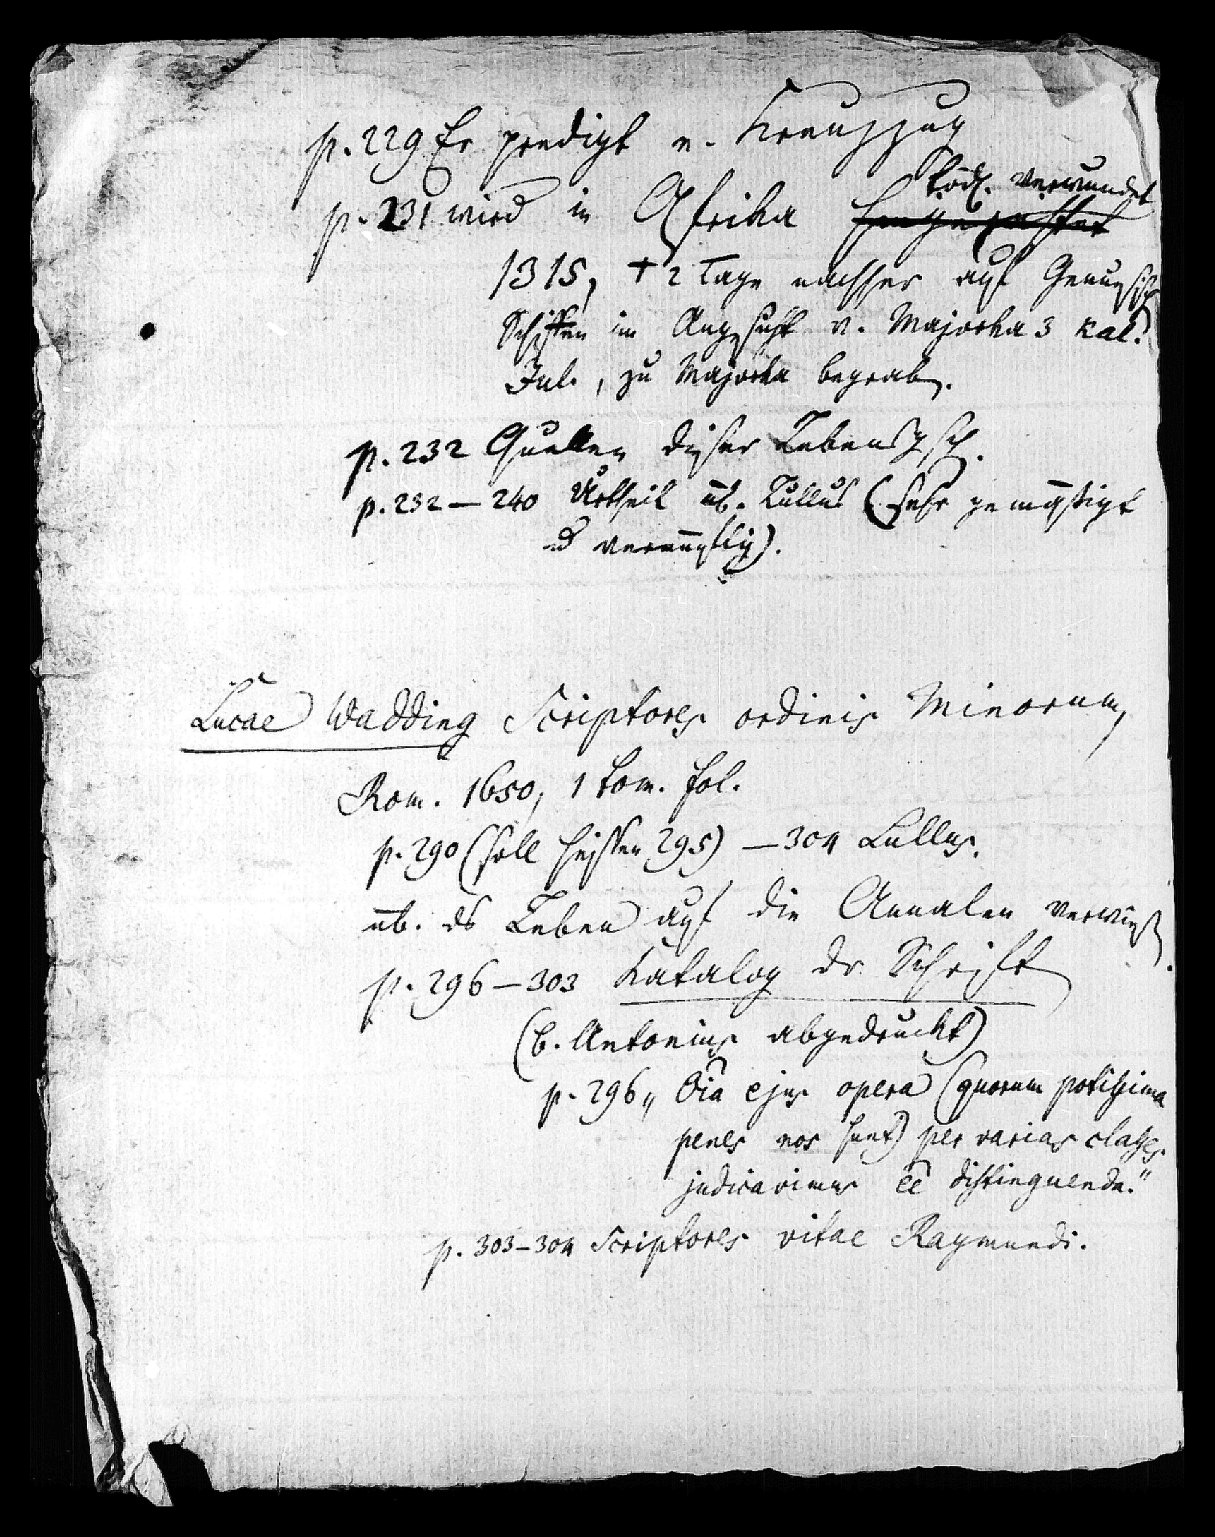 p. 229 Er predigt e. Kreuzzug
tödl. verwundet
p. 231 wird in Afrika hingerichtet
1315, † 2 Tage nachher auf Genuesisch
Schiffen im Angesicht v. Majorka 3 kal.
Jul., zu Majorka begrab.
p. 232 Quellen dieser Lebensgsch.
p. 232 — 240 Urtheil üb. Lullus (sehr gemässigt
ud vernünftig).
Lucae Wadding Scriptores ordinis Minorum,
Rom. 1650, 1 tom. fol.
p. 290 (soll heissen 295) — 304 Lullus.
üb. ds Leben auf die Annalen verwiess.
p. 296 — 303 Katalog dr Schrift
(b. Antonius abgedruckt)
p. 296 „ Oĩa ejus opera (quorum potissima
penes nos sunt) per varias classes
judicavimus eẽ distinguenda."
p. 303–304 Scriptores vitae Raymundi.